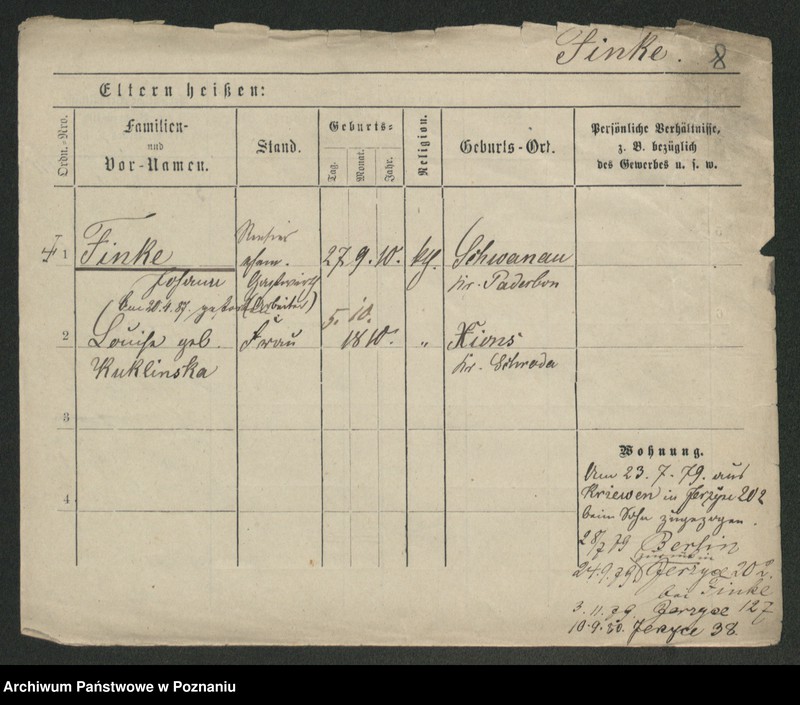 Finke. 8
Eltern heißen:
Ordn.-Nro.
Familien-
und
Vor-Namen.
Stand.
Geburts-
Tag.
Monat.
Jahr.
Religion.
Geburts-Ort.
Persönliche Verhältnisse,
z. B. bezüglich
des Gewerbes u. s. w.
Rentier
1 Finke ehem. 27. 9. 10. kth. Schwanau
Johann Gastwirth Kr. Paderbon
Am 20.4.87. gestorben (Arbeiter)
5. 10.
2 Louise geb. Frau 1810. " Xions
Kuklinska Kr. Schroda
3
4
Wohnung.
Am 23. 7. 79. aus
Kriewen in Jerzyce 202
beim Sohn zugezogen.
28/7 79 Berlin
24.9.79 Jerzyce 202.
bei Finke
3. 11. 79. Jerzyce 127
10. 9. 80. Jerzyce 38.
Archiwum Państwowe w Poznaniu